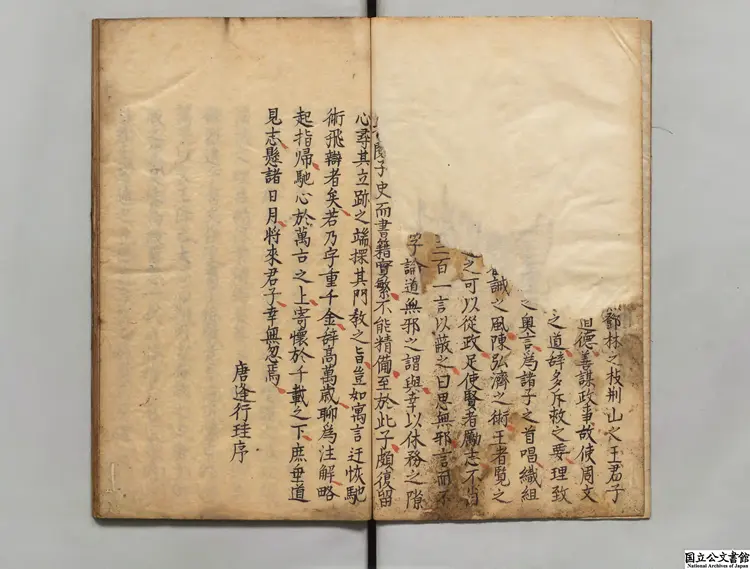 林之枝荆山之王君子
道德善謀政事故使周文
之道辞多斥救之要理致
之奥言爲諸子之首唱織組
誡之風陳弘濟之術王者覽之
之可以從政足使賢者勵志不肖
三百一言以蔽之曰思無邪言而不
子論道無邪之謂與幸以休務之隙
閲子史而書籍實繁不能精備至於此子頗復留
心尋其立跡之端探其門教之旨豈如寓言迂恢馳
術飛辯者矣若乃字重千金辞高萬歳聊爲注解略
起指歸馳心於萬古之上寄懷於千載之下庶垂道
見志懸諸日月將來君子幸無忽焉
唐逢行珪序
国立公文書館
National Archives of Japan